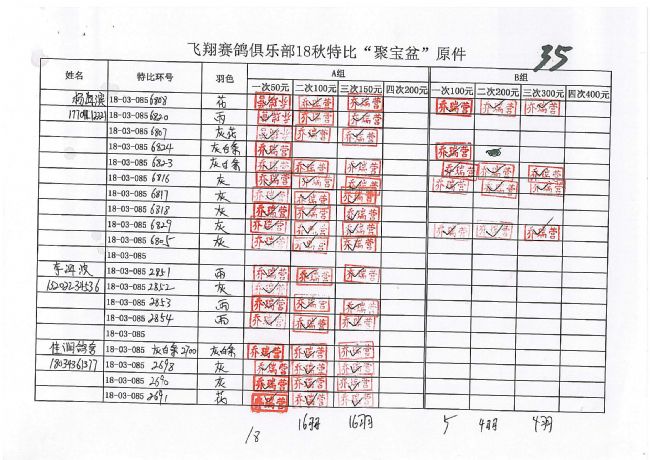 飞翔赛鸽俱乐部18秋特比“聚宝盆”原件
35
姓名 特比环号 羽色 A组 B组
一次50元 二次100元 三次150元 四次200元 一次100元 二次200元 三次300元 四次400元
18-03-085 6808 花 乔瑞营 乔瑞营 乔瑞营 乔瑞营 乔瑞营
18-03-085 6820 雨 乔瑞营 乔瑞营
18-03-085 6807 灰花 乔瑞营 乔瑞营
18-03-085 6824 灰白条 乔瑞营 乔瑞营
18-03-085 6823 灰白条 乔瑞营 乔瑞营 乔瑞营 乔瑞营 乔瑞营 乔瑞营
18-03-085 6816 灰 乔瑞营 乔瑞营 乔瑞营 乔瑞营 乔瑞营 乔瑞营
18-03-085 6817 灰 乔瑞营 乔瑞营 乔瑞营
18-03-085 6318 灰 乔瑞营 乔瑞营 乔瑞营
18-03-085 6829 灰 乔瑞营 乔瑞营 乔瑞营 乔瑞营 乔瑞营 乔瑞营
18-03-085 6805 灰 乔瑞营 乔瑞营 乔瑞营
18-03-085
18-03-085 2851 雨 乔瑞营 乔瑞营 乔瑞营
15203234536 18-03-085 2852 灰 乔瑞营
18-03-085 2853 雨 乔瑞营 乔瑞营 乔瑞营
18-03-085 2854 雨 乔瑞营 乔瑞营 乔瑞营
18-03-085
18-03-085 灰白条 2700 灰白条 乔瑞营 乔瑞营 乔瑞营
18034361377 18-03-085 2698 灰 乔瑞营 乔瑞营 乔瑞营
18-03-085 2690 灰 乔瑞营 乔瑞营 乔瑞营
18-03-085 2691 花 乔瑞营 乔瑞营 乔瑞营
18 16羽 16羽 5 4羽 4羽